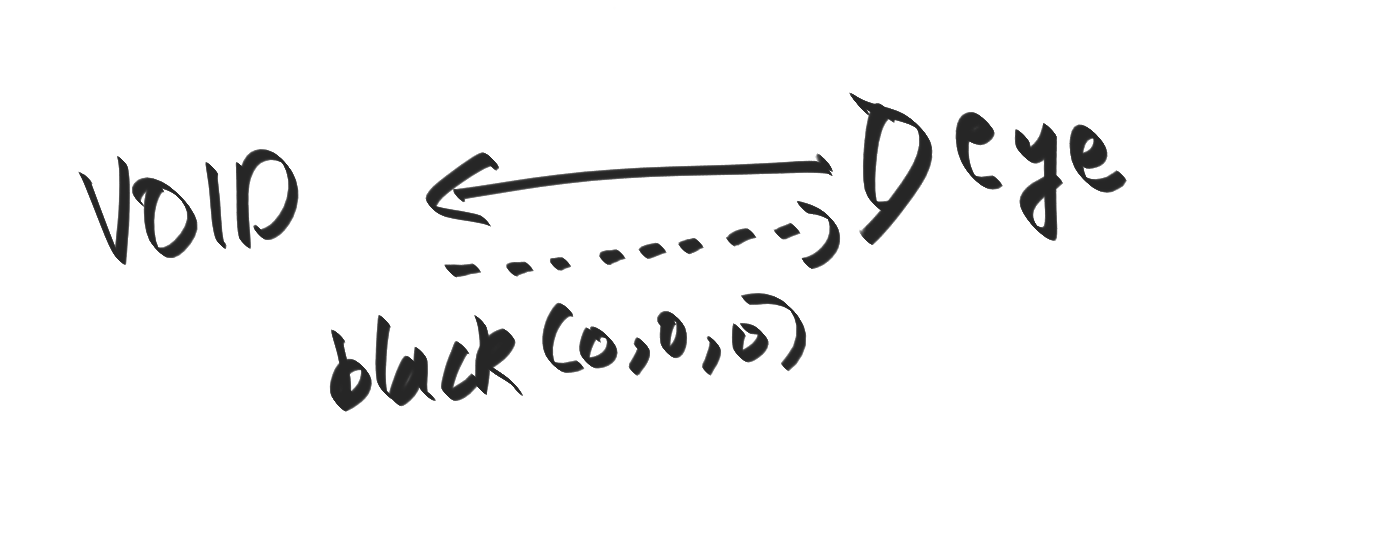 VOID
eye
black (0,0,0)